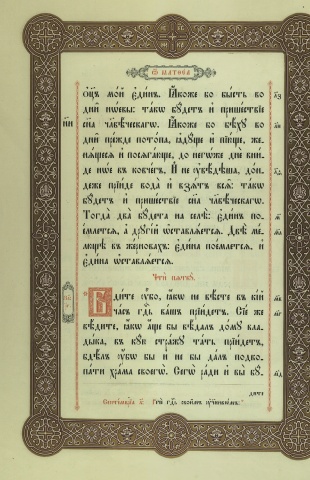 Ѿ маттеа
О҆ц҃ъ мо́й є҆ди́нъ. Ꙗ҆́коже бо бы́сть во
дни̑ нѡ́евы: та́кѡ бꙋ́детъ и҆ прише́ствїе
сн҃а чл҃вѣ́ческагѡ. Ꙗ҆́коже бо бѣ́хꙋ во
дни̑ пре́жде пото́па, ꙗ҆дꙋ́ще и҆ пїю́ще, же-
нѧ́щесѧ и҆ посѧга́юще, до негѡ́же днѐ вни́-
де нѡ́е въ ковче́гъ, И҆ не ᲂу҆вѣ́дѣша, до́н-
деже прїи́де вода̀ и҆ взѧ́тъ всѧ̑: та́кѡ
бꙋ́детъ и҆ прише́ствїе сн҃а чл҃вѣ́ческагѡ.
Тогда̀ два̀ бꙋ́дета на селѣ̀: є҆ди́нъ по-
е́млетсѧ, а҆ дрꙋгі́й ѡ҆ставлѧ́етсѧ. Двѣ̀ ме-
лю́щѣ въ же́рновахъ: є҆ди́на пое́млетсѧ, и҆
є҆ди́на ѡ҆ставлѧ́етсѧ.
Бди́те ᲂу҆̀бо, ꙗ҆́кѡ не вѣ́сте въ кі́й
ча́съ гдⷭ҇ь ва́шъ прїи́детъ. Сїе́ же
вѣ́дите, ꙗ҆́кѡ а҆́ще бы вѣ́далъ до́мꙋ вла-
ды́ка, въ кꙋ́ю стра́жꙋ та́ть прїи́детъ,
бдѣ́лъ ᲂу҆́бѡ бы и҆ не бы̀ да́лъ подко-
па́ти хра́ма своегѡ̀. Сегѡ̀ ра́ди и҆ вы̀ бꙋ-
дите